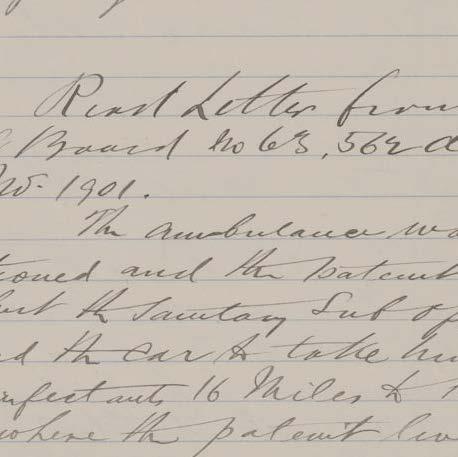 Read Letter from
Board No 63,562 d
1901.
The ambulance wa
tioned and the patient
but the Sanitary Sub Of
ed the car to take hi
infectants 16 Miles to
where the patient liv